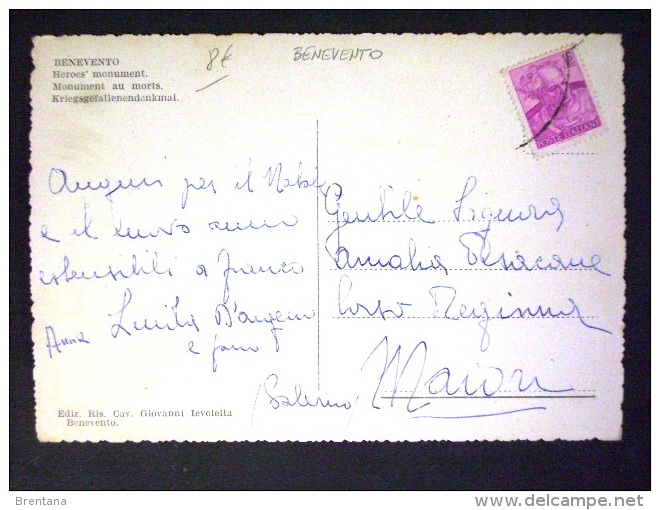 BENEVENTO
Heroes' monument.
Monument au morts.
Kriegsgefallenendenkmal.
8€
BENEVENTO
POSTE ITALIANE
Auguri per il Natale
e il nuovo anno
estensibili a Franco
Anna Lucila D'Angelo
e fam
Gentile Signora
Amalia
Corso Reginna
Maiori
(Salerno)
Ediz. Ris. Cav. Giovanni Ievolella
Benevento.
Brentana
delcampe.net